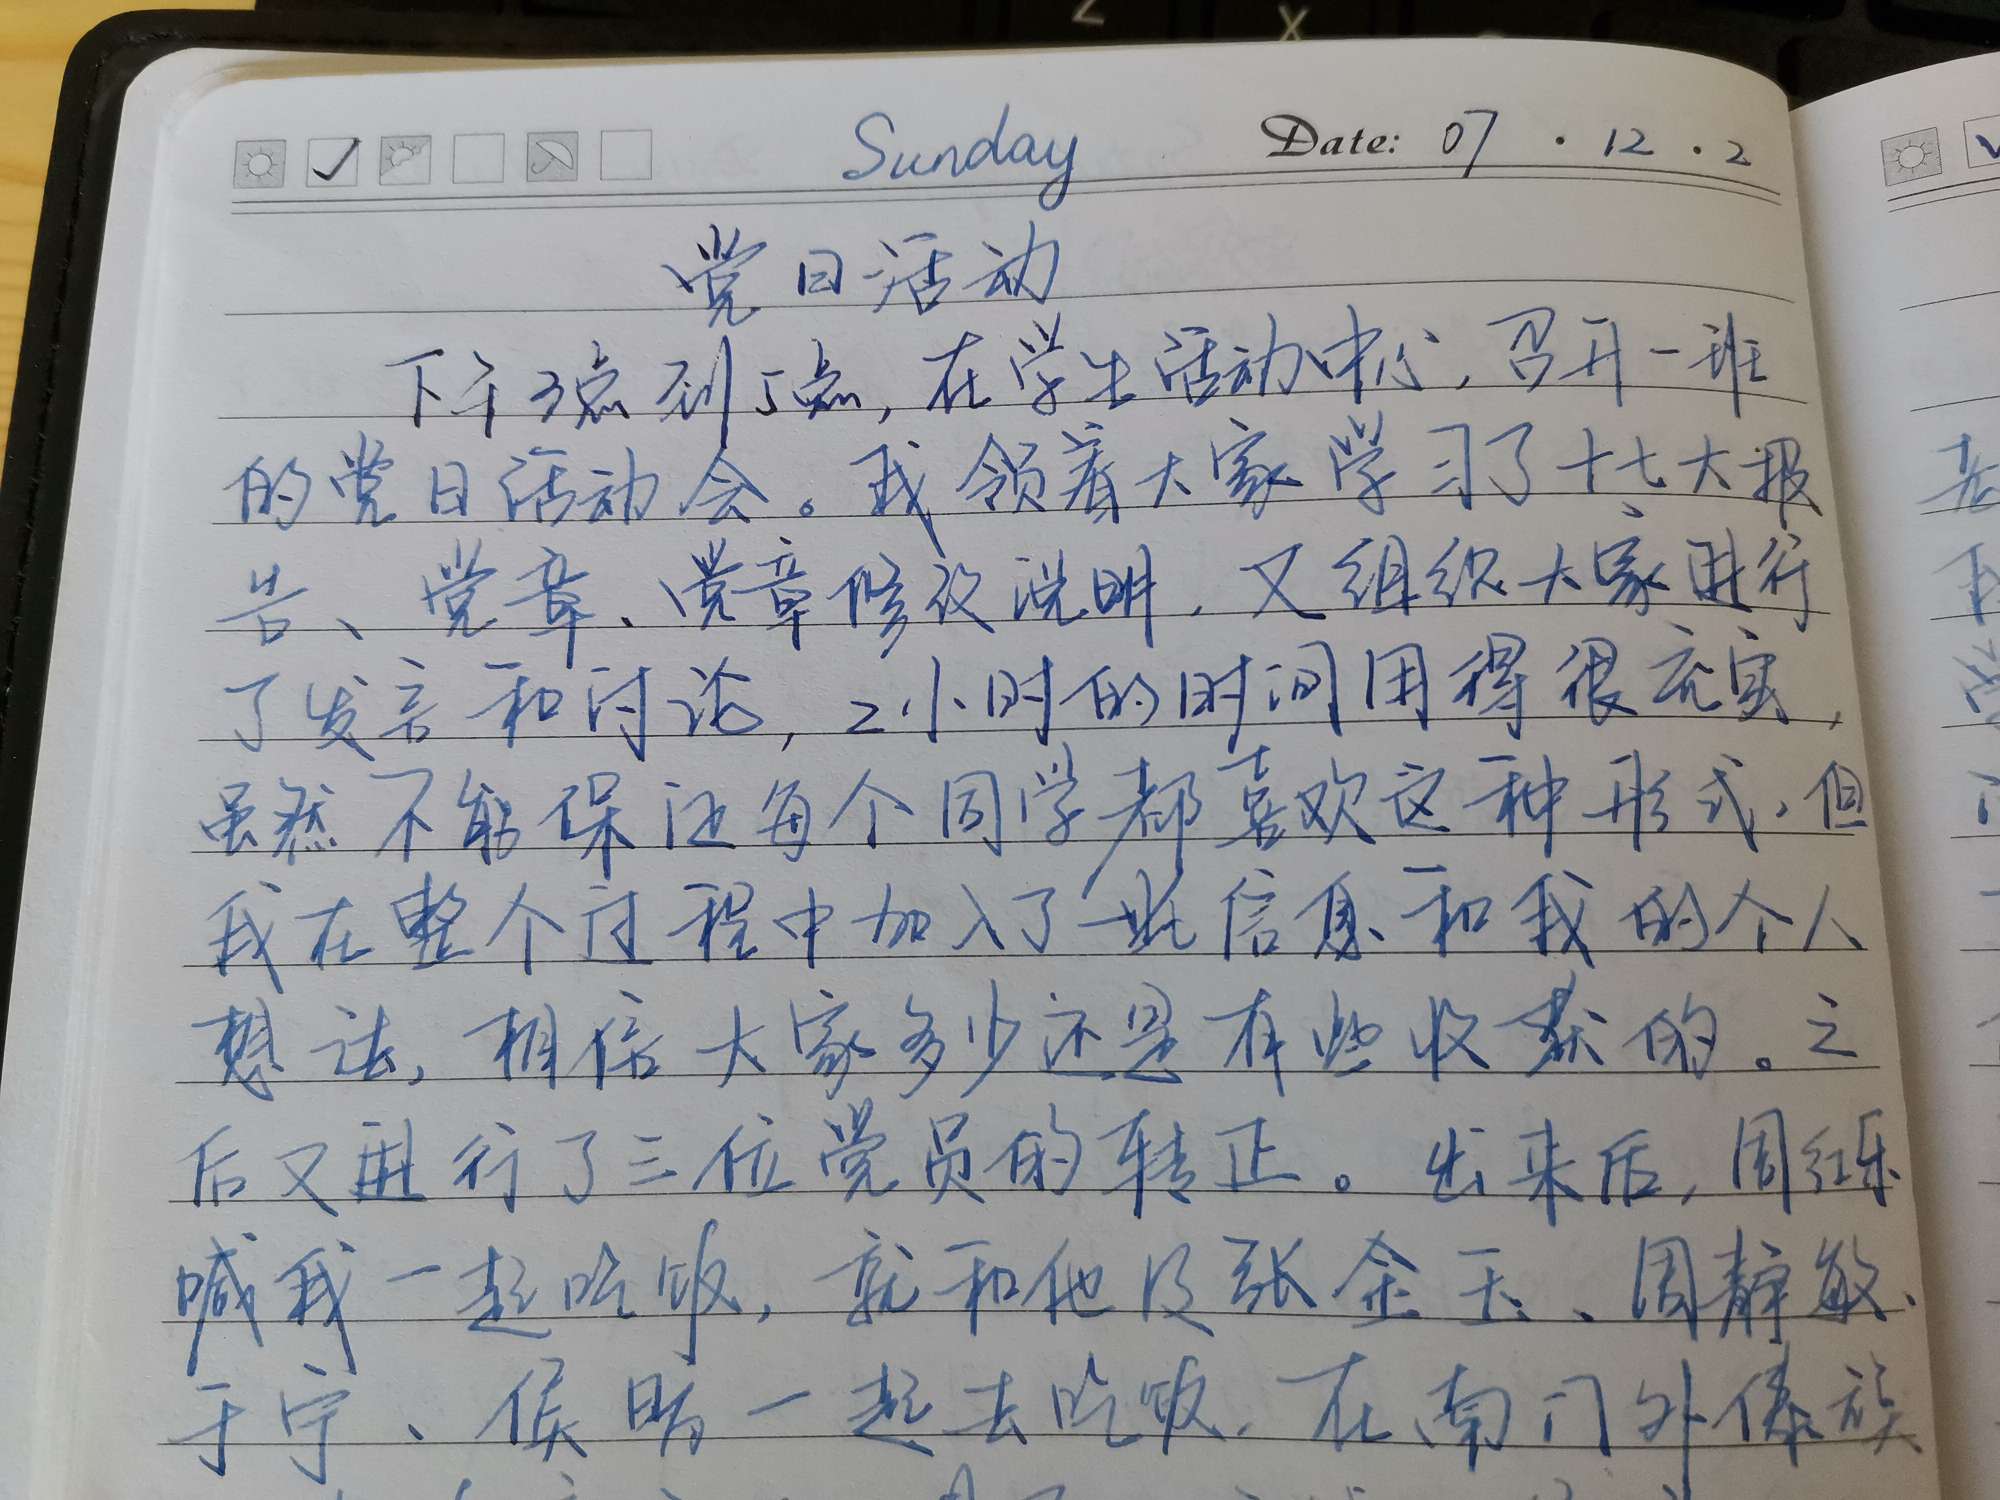 Z X
Sunday Date: 07 . 12 . 2
党日活动
下午3点到5点,在学生活动中心,召开一班
的党日活动会。我领着大家学习了十七大报
告、党章、党章修改说明,又组织大家进行
了发言和讨论,2小时的时间用得很充实,
虽然不能保证每个同学都喜欢这种形式,但
我在整个过程中加入了一些信息和我的个人
想法,相信大家多少还是有些收获的。之
后又进行了三位党员的转正。出来后,周红乐
喊我一起吃饭,就和他及张金玉、周静敏、
于宁、侯晴一起去吃饭,在南门外傣族